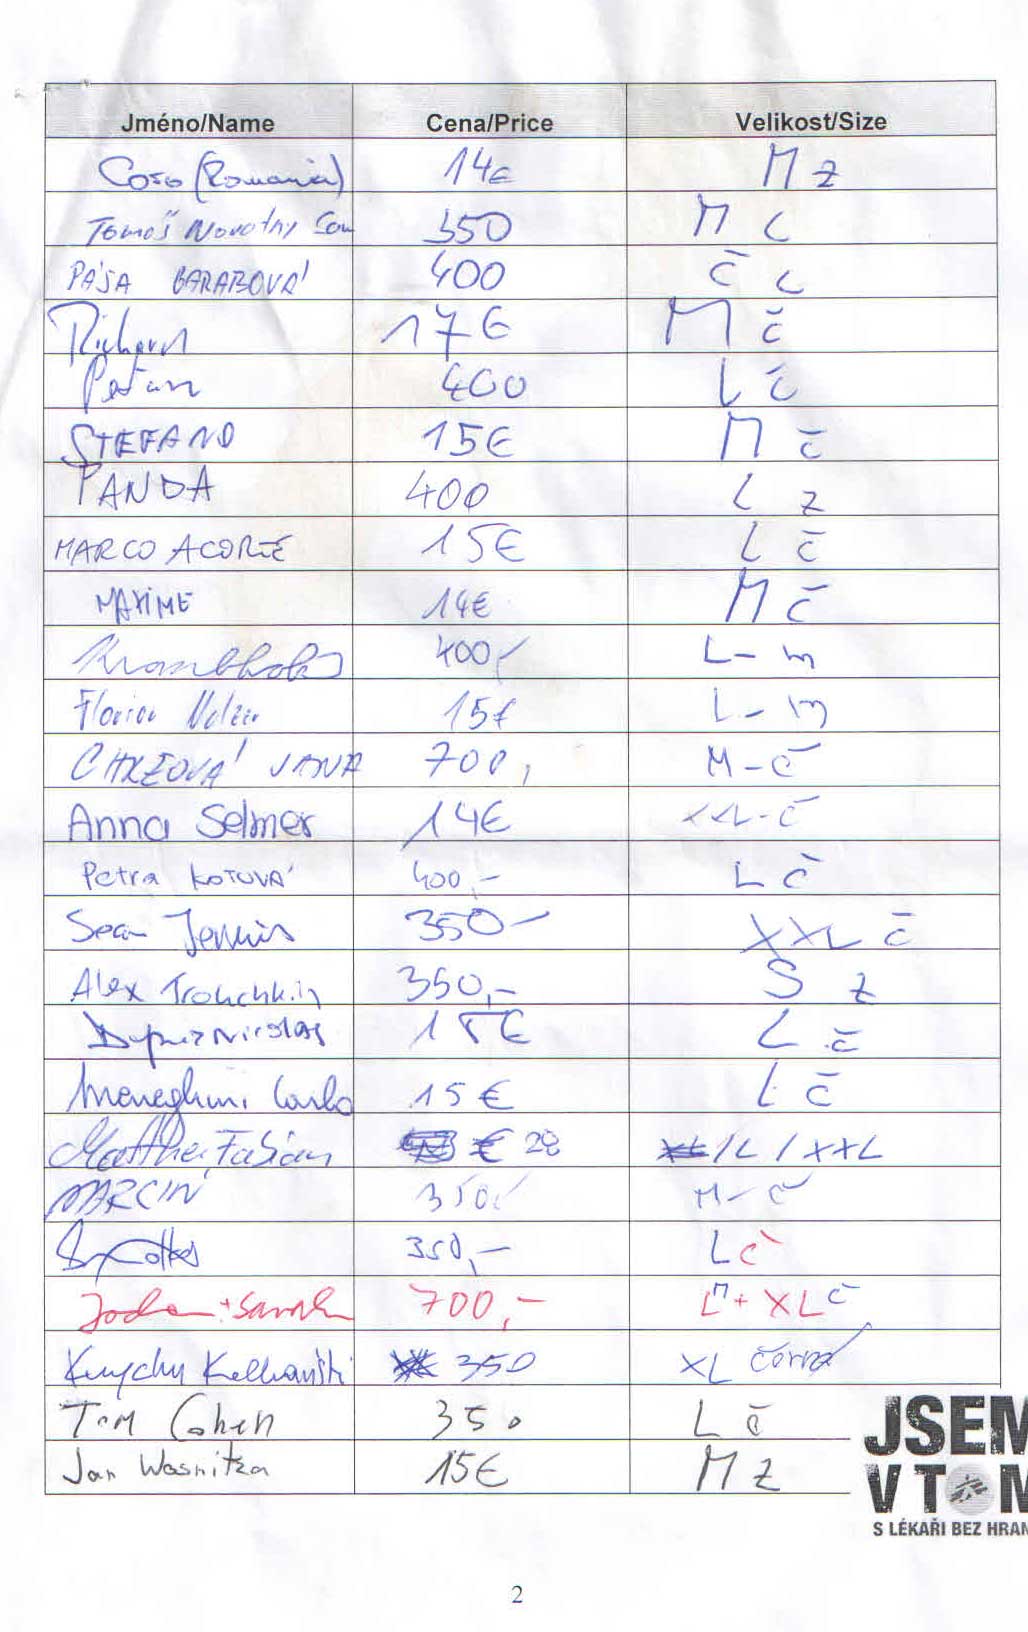 Jméno/Name Cena/Price Velikost/Size
Coso (Romania) 14€ M z
Tomáš Novotny 350 M L
PÁJA BARABOVÁ 400 č L
Richard 17€ M č
400 L č
STEFANO 15€ M č
PANDA 400 L z
MARCO ACORTE 15€ L č
MAXIME 14€ M č
400,- L-m
Florian 15€ L-m
JANA 700, M-č
Anna Selmer 14€ XXL-č
Petra KOTOVÁ 400,- L č
Sean 350- XXL č
Alex Trouchkin 350,- S z
15€ L č
Meneghini Carlo 15€ L č
Fabian € 28 /L/XXL
MARCIN 350,- M-č
350,- L č
+ Sarah 700,- L m + XL č
350 XL černá
Tom Cohen 350 L č
Jan Wosnitza 15€ M z
JSEM
V TOM
S LÉKAŘI BEZ HRAN
2